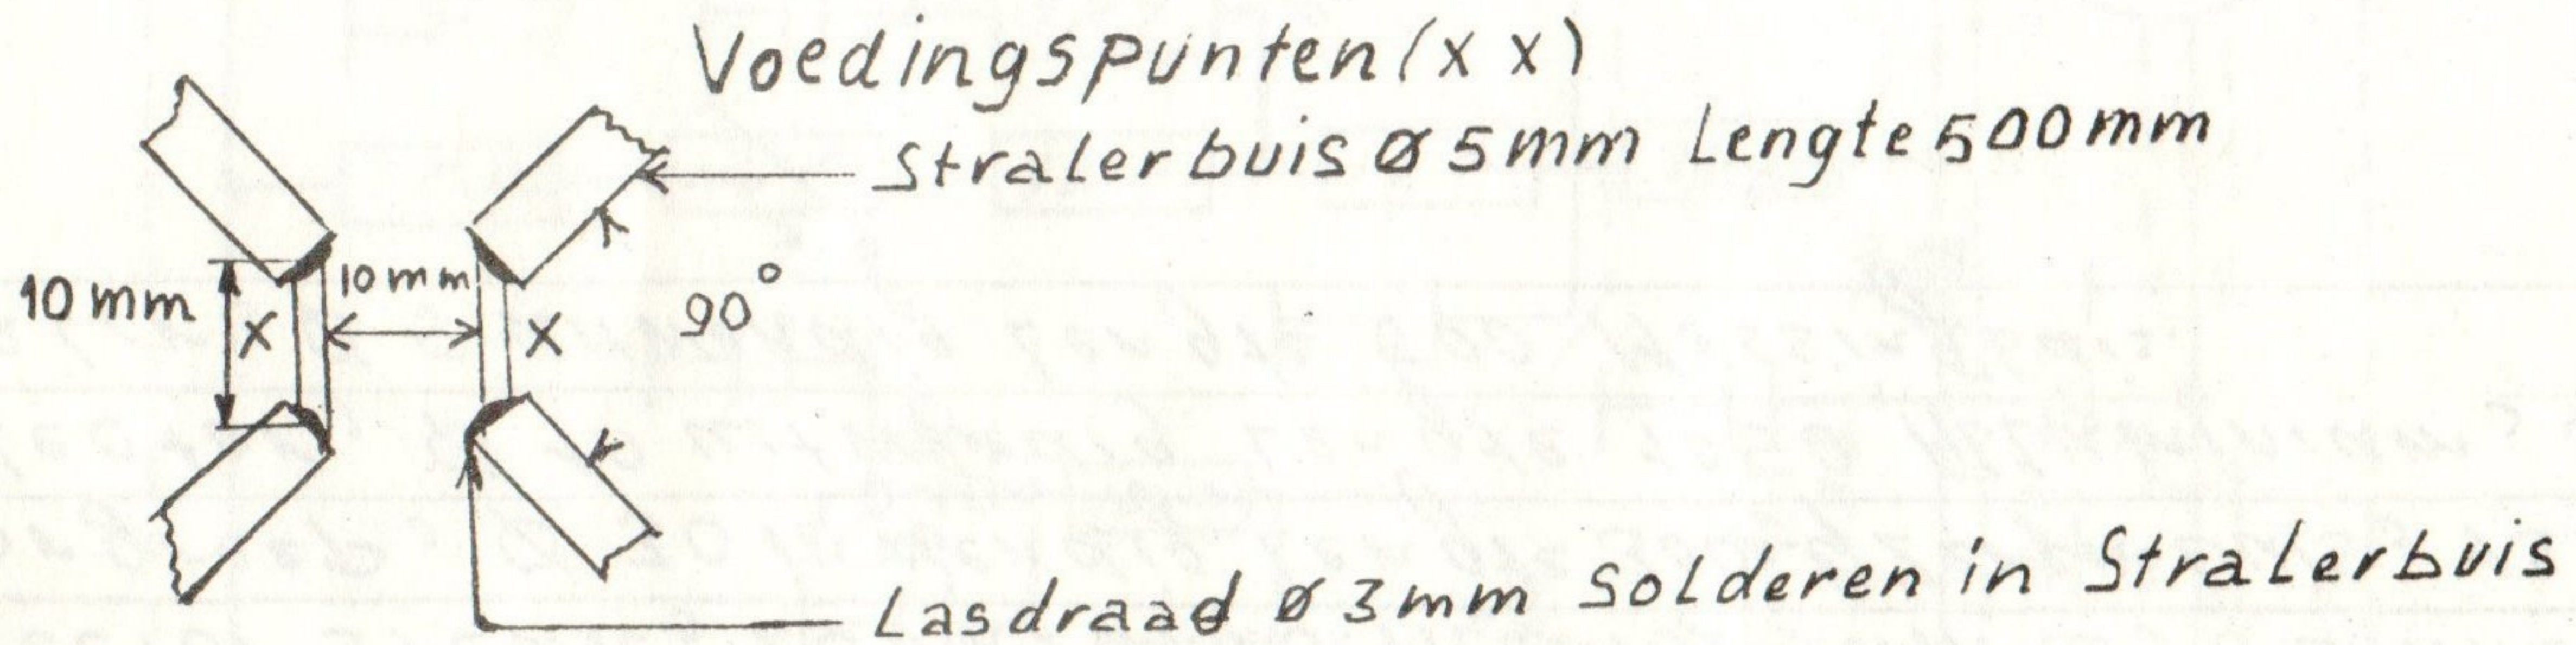 Voedingspunten (x x)
Stralerbuis Ø 5mm Lengte 500mm
10 mm
10 mm
X
X
90°
Lasdraad Ø 3mm Solderen in Stralerbuis